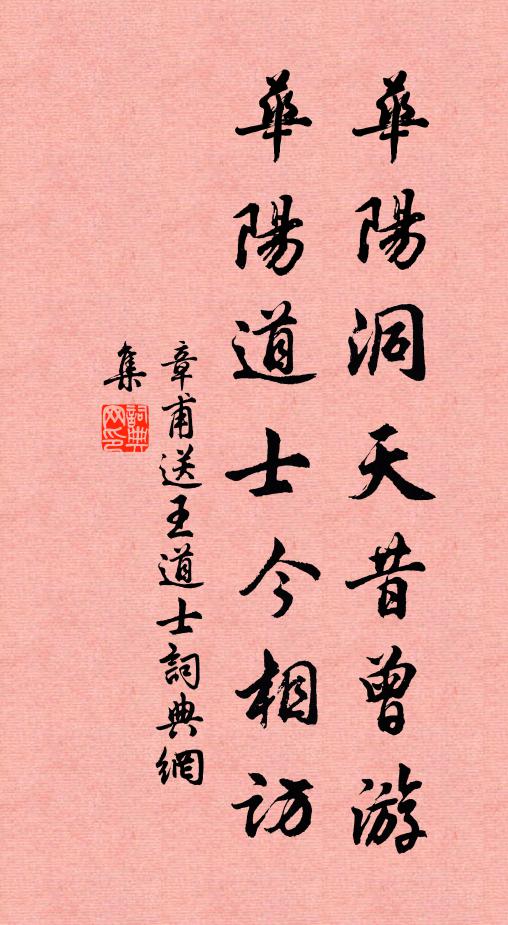 華陽洞天昔曾游
華陽道士今相訪
章甫送王道士詞典網
集
詞典
网印